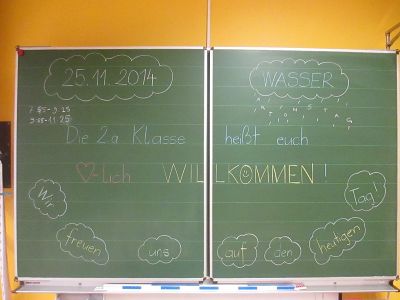 25.11.2014
WASSER
7.55-9.25
9.55-11.25
AKTIONSTAG
Die 2a Klasse heißt euch
♡-lich WILLKOMMEN!
Wir freuen uns auf den heutigen Tag!